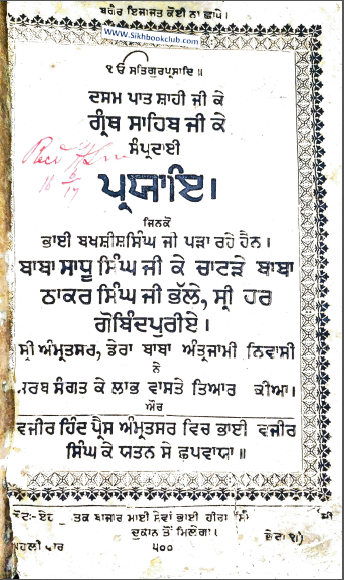 ਬਗੈਰ ਇਜਾਜਤ ਕੋਈ ਨਾ ਛਾਪੇ।
www.Sikhbookclub.com
ੴ ਸਤਿਗੁਰਪ੍ਰਸਾਦਿ॥
ਦਸਮ ਪਾਤਸ਼ਾਹੀ ਜੀ ਕੇ
ਗ੍ਰੰਥ ਸਾਹਿਬ ਜੀ ਕੇ
ਸੰਪ੍ਰਦਾਈ
ਪ੍ਰਯਾਇ।
ਜਿਨਕੋ
ਭਾਈ ਬਖਸ਼ੀਸ਼ਸਿੰਘ ਜੀ ਪੜਾ ਰਹੇ ਹੈਨ।
ਬਾਬਾ ਸਾਧੂ ਸਿੰਘ ਜੀ ਕੇ ਚਾਟੜੇ ਬਾਬਾ
ਠਾਕਰ ਸਿੰਘ ਜੀ ਭੱਲੇ, ਸ੍ਰੀ ਹਰ
ਗੋਬਿੰਦਪੁਰੀਏ।
ਸ੍ਰੀ ਅੰਮ੍ਰਤਸਰ, ਡੇਰਾ ਬਾਬਾ ਅੰਤ੍ਰਜਾਮੀ ਨਿਵਾਸੀ
ਨੇ
ਸਰਬ ਸੰਗਤ ਕੇ ਲਾਭ ਵਾਸਤੇ ਤਿਆਰ ਕੀਆ।
ਔਰ
ਵਜੀਰ ਹਿੰਦ ਪ੍ਰੈਸ ਅੰਮ੍ਰਤਸਰ ਵਿਚ ਭਾਈ ਵਜੀਰ
ਸਿੰਘ ਕੇ ਯਤਨ ਸੇ ਛਪਵਾਯਾ॥
ਬਾਜ਼ਾਰ ਮਾਈ ਸੇਵਾਂ ਭਾਈ ਹੀਰਾ
ਦੁਕਾਨ ਤੋਂ ਮਿਲੇਗਾ।
ਭੇਟਾ
ਪਹਲੀ ਵਾਰ ੫੦੦